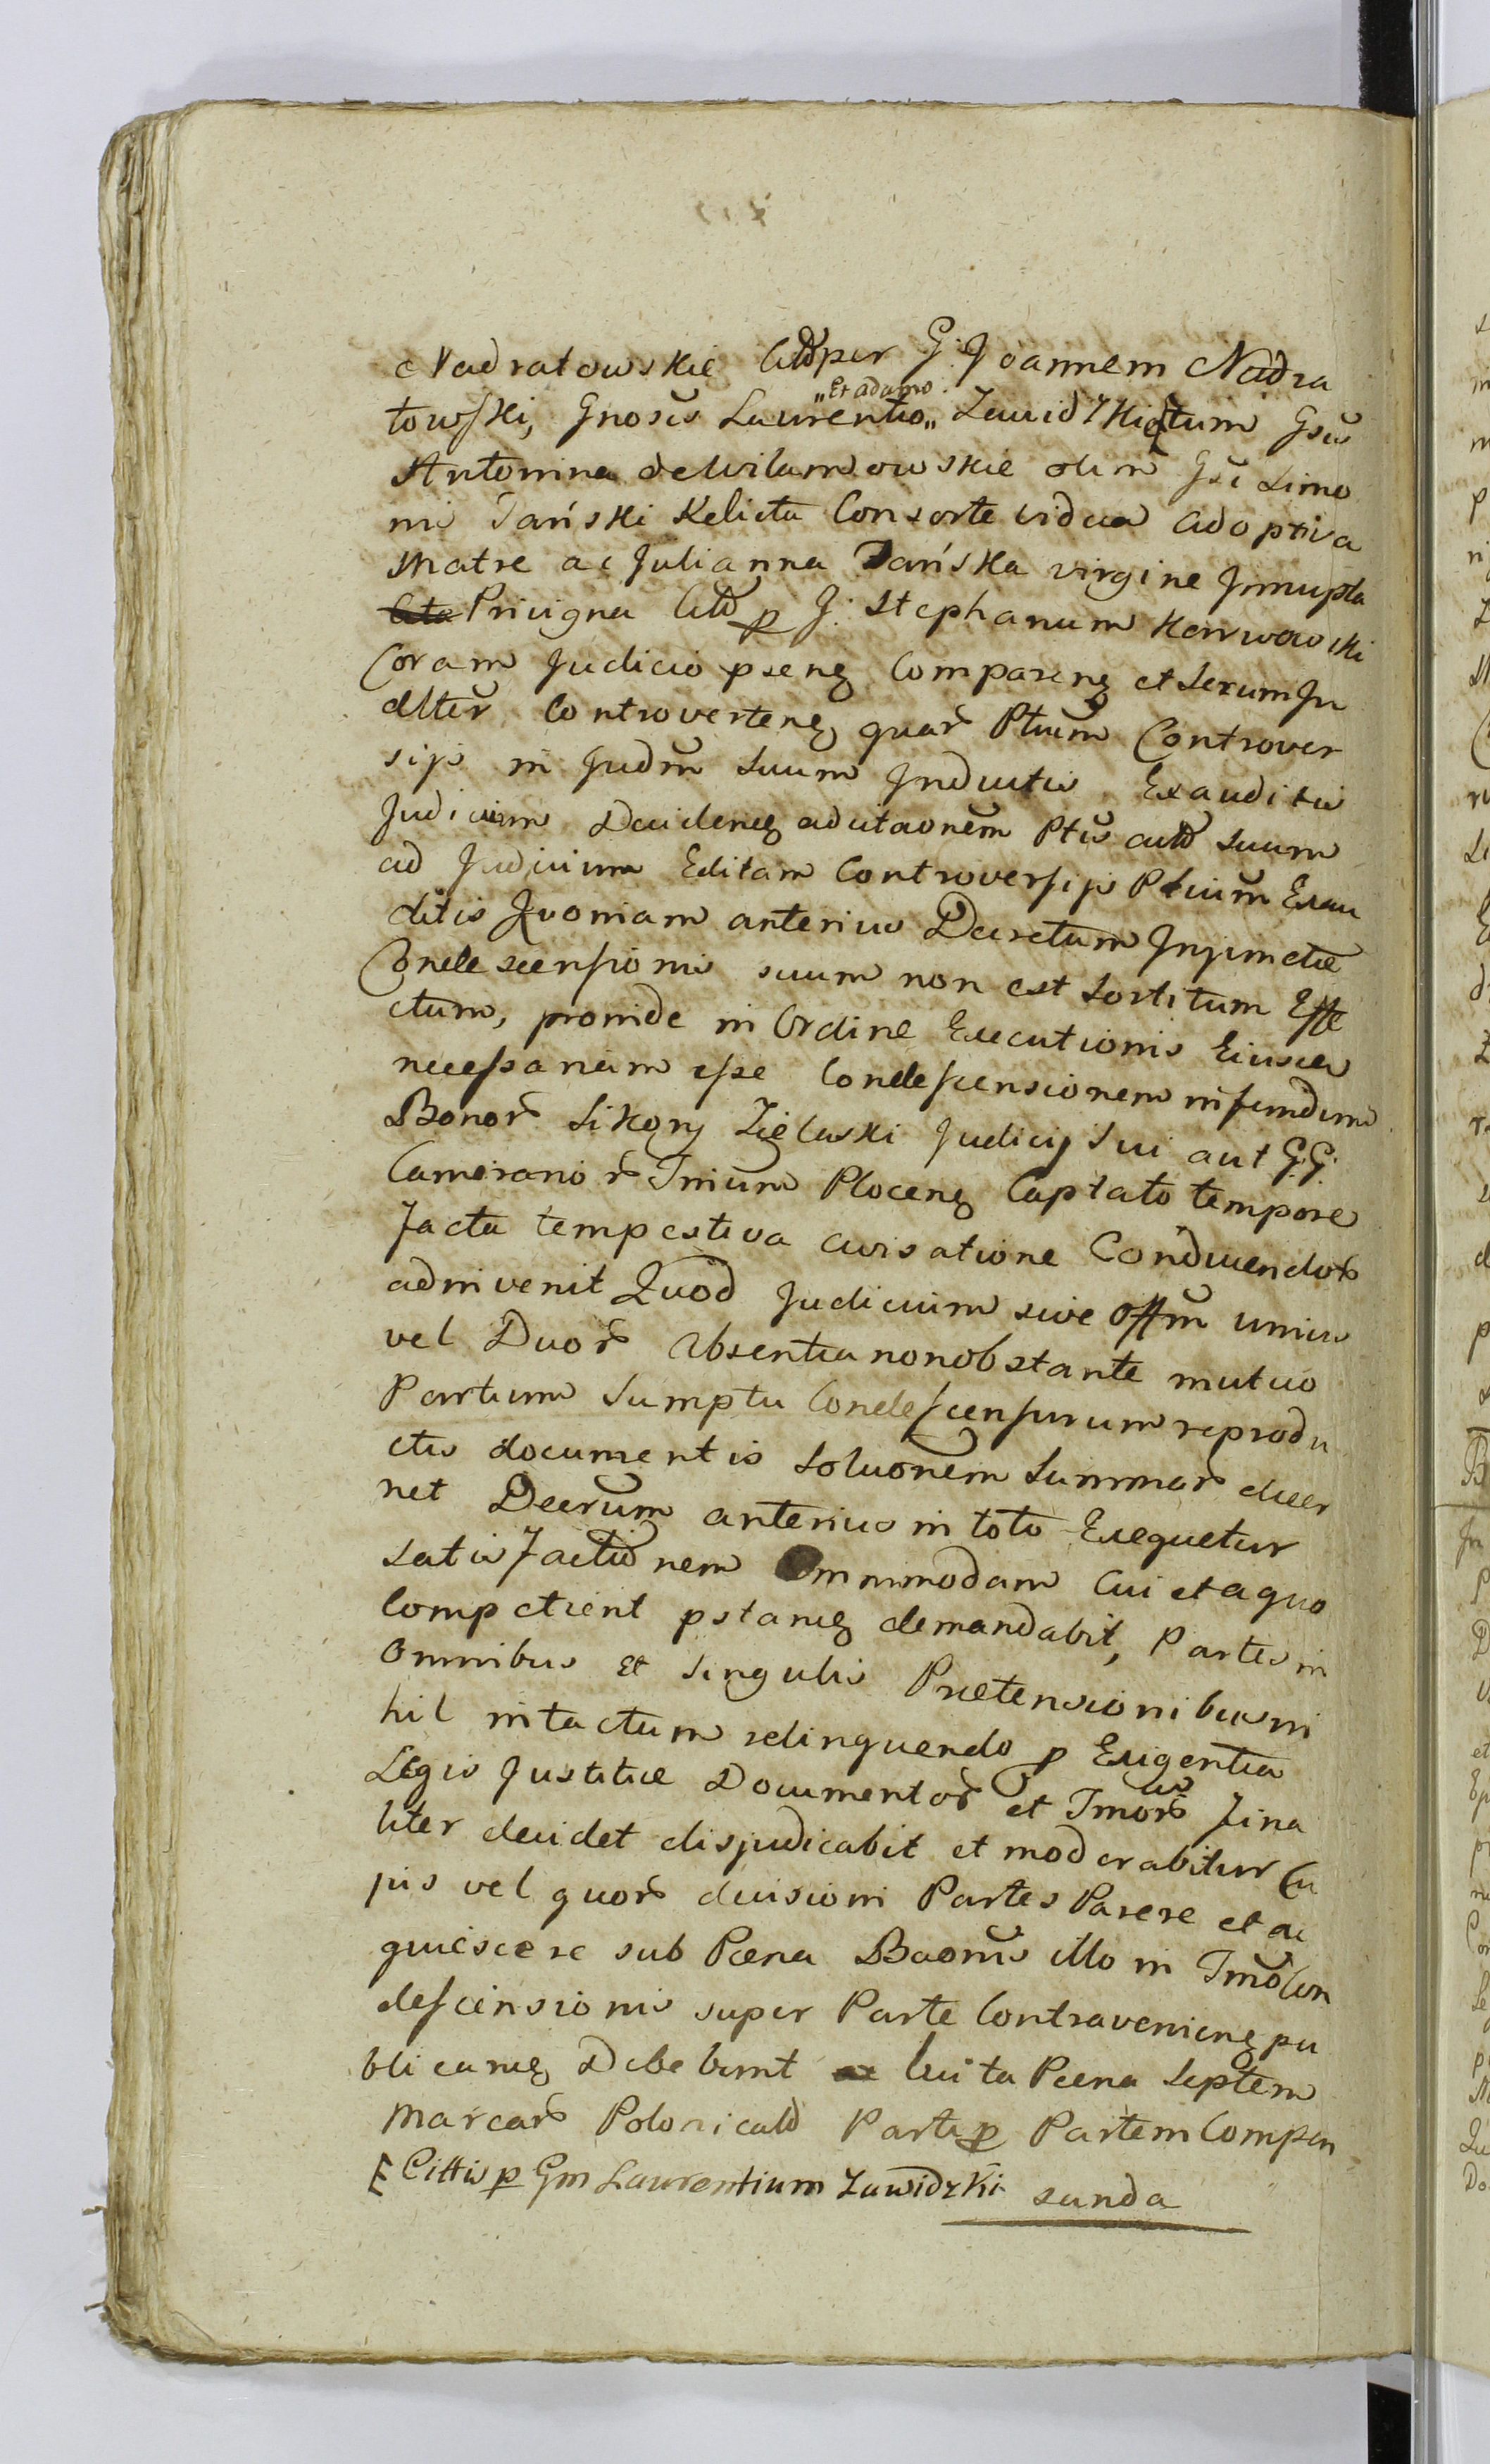 Nadratowskie Citto per G: Joannem Nadra
towski, Gnosis Laurentio „Et Adamo„ Zawidzki tum Gsis
Antonina de Wilamowskie olim Gsi Simo
nis Tański Relicta Consorte vidua adoptiva
Matre ac Julianna Tańska virgine Innupta
Privigna Citt p G: Stephanum Karwowski
Coram Judicio pseng Compareng et Serum In
dltur Controverteng quar Ptium Controver
sijs in Judm Suum Inductis Exauditis
Judicium Decideng ad citaonem Ptis citto Suum
ad Judicium Editam Controversijs Ptium Exau
ditis Quoniam anterius Decretum Injunctae
Condescensionis suum non est Sortitum Effe
ctum, proinde in Ordine Executionis Eiusce
necessariam esse Condescensionem in fundum
Bonor Sikory Zielaski Judicij Sui aut G:G:
Camerarior Trium Ploceng Captato tempore
facta tempestiva avisatione Conducendor
adinvenit Quod Judicium sive Offm unius
vel Duor Absentia nonobstante mutuo
Partium Sumptu Condescensurum reprodu
ctis documentis Soluonem Summar decer
net Decrum anterius in toto Exequetur
satisfactionem Ommimodam Cui et a quo
Competient pstang demandabit, Partes in
Omnibus et Singulis Praetensionibus ni
hil intactum relinquendo p Exigentia
Legis Justitiae Documentor et Tmor fina
liter decidet disjudicabit et moderabitur Cu
jus vel quor decisioni Partes Parere et ac
quiescere sub Poena Baonis illo in Tmo Con
descensionis super Parte Contravenieng pu
blicang Debebunt Luita Poena Septem
Marcar Polonicalo Parti p Partem Compen
Cittis p Gm Laurentium Zawidzki sanda